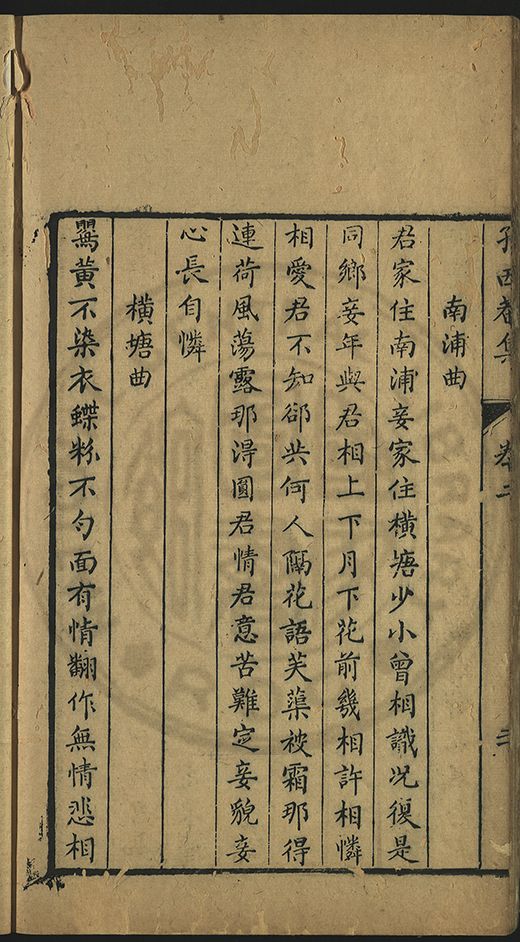 孫西菴集 卷二 二
南浦曲
君家住南浦妾家住橫塘少小曾相識况復是
同鄉妾年與君相上下月下花前幾相許相憐
相愛君不知卻共何人隔花語芙蕖被霜那得
連荷風蕩露那得圓君情君意苦難定妾貌妾
心長自憐
橫塘曲
鵶黃不染衣蝶粉不勻面有情翻作無情悲相